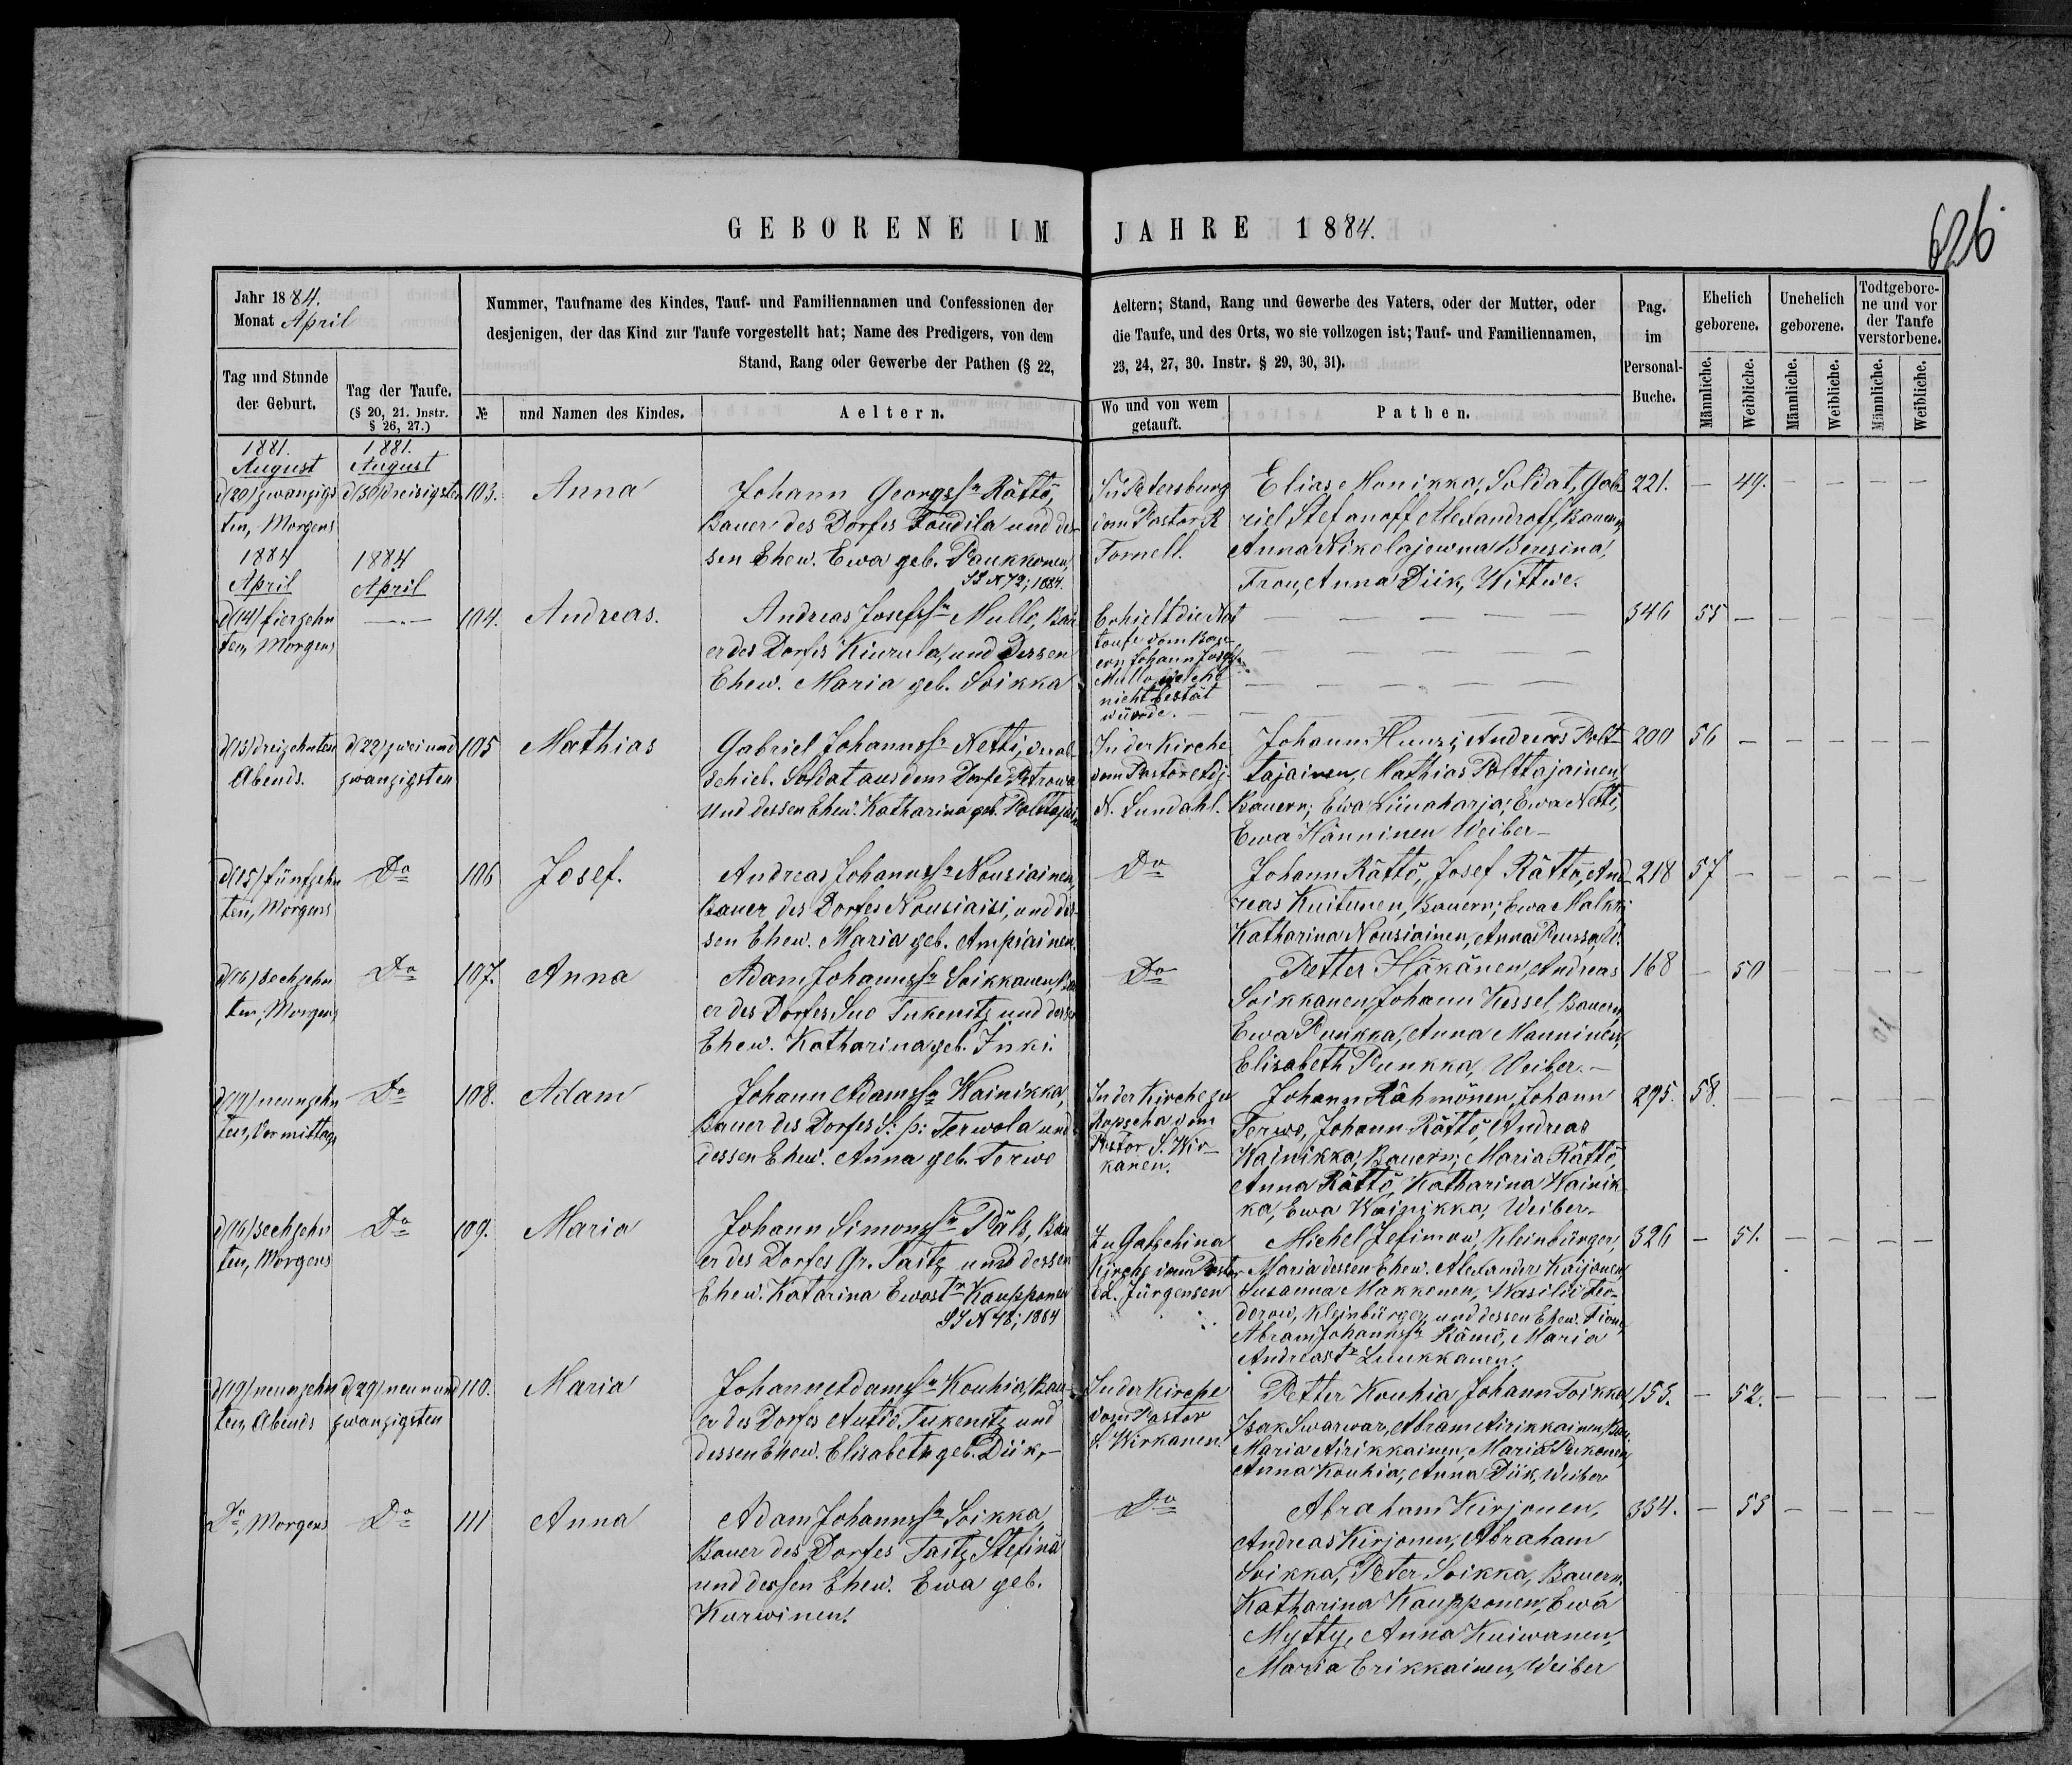 GEBORENE IM JAHRE 1884.
626
Jahr 1884.
Monat April
Nummer, Taufname des Kindes, Tauf- und Familiennamen und Confessionen der
desjenigen, der das Kind zur Taufe vorgestellt hat; Name des Predigers, von dem
Stand, Rang oder Gewerbe der Pathen (§ 22,
Aeltern; Stand, Rang und Gewerbe des Vaters, oder der Mutter, oder
die Taufe, und des Orts, wo sie vollzogen ist; Tauf- und Familiennamen,
23, 24, 27, 30. Instr. § 29, 30, 31).
Pag.
im
Personal-
Buche.
Ehelich
geborene.
Unehelich
geborene.
Todtgebore-
ne und vor
der Taufe
verstorbene.
Tag und Stunde
der Geburt.
Tag der Taufe.
(§ 20, 21. Instr.
§ 26, 27.)
№
und Namen des Kindes.
Aeltern.
Wo und von wem
getauft.
Pathen.
Männliche.
Weibliche.
Männliche.
Weibliche.
Männliche.
Weibliche.
1881.
August
d(20) zwanzigs
ten, Morgens
1881.
August
d(30) dreisigsten
103.
Anna
Johann Georgssn Rättö,
Bauer des Dorfes Toudila und des
sen Ehew. Ewa geb. Paukkonen,
N 72; 1884.
In Petersburg
vom Pastor R
Tornell.
Elias Monikka, Soldat, Gab
riel Stefanoff Alexandroff, Bauern,
Anna Nikolajewna Beresina,
Frau, Anna Diik, Wittwe.
221.
— 49. — — — —
1884
April
d(14) fierzehn
ten, Morgens
1884
April
—
104.
Andreas.
Andreas Josefssn Mullo, Bau
er des Dorfes Kiurula, und Dessen
Ehew. Maria geb. Soikka
Erhielt die Not
taufe vom Bau
ern Johann Josefs
Mullo, welche
nicht bestät
würde.
346
55 — — — — —
d(13) dreizehnten
Abends.
d(22) zwei und
zwanzigsten
105
Mathias
Gabriel Johannssn Netti, verab
schied. Soldat aus dem Dorfe Petrowa
und dessen Ehew. Katharina geb. Polttajain
In der Kirche
vom Pastor Adj.
N. Sundahl.
Johann Hunzi, Andreas Polt
tajainen, Mathias Polttajainen,
Bauern; Ewa Liinaharja, Ewa Netti,
Ewa Hänninen Weiber —
200
56 — — — — —
d(15) fünfzehn
ten, Morgens
Do
106
Josef.
Andreas Johannssn Nousiainen,
Bauer des Dorfes Nousiaisi, und des
sen Ehew. Maria geb. Ampiainen.
Do
Johann Rättö, Josef Rättö, And
reas Kuitunen, Bauern; Ewa Malkki
Katharina Nousiainen, Anna Russa, W.
218
57 — — — — —
d(16) sechzehn
ten, Morgens
Do
107.
Anna
Adam Johannssn Soikkanen, Bau
er des Dorfes Suo Tukenitz und dessen
Ehew. Katharina geb. Inki.
Do
Petter Häkänen, Andreas
Soikkanen, Johann Kessel, Bauern,
Ewa Punkka, Anna Manninen,
Elisabeth Punkka, Weiber. —
168
— 50 — — — —
d(19) neunzehn
ten, Vormittags
Do
108.
Adam
Johann Adamssn Wainikka,
Bauer des Dorfes S. p. Terwola und
dessen Ehew. Anna geb. Terwo
In der Kirche zu
Ropscha vom
Pastor S. Wir-
kanen.
Johann Rähmönen, Johann
Terwo, Johann Rättö, Andreas
Wainikka, Bauern; Maria Rättö,
Anna Rättö, Katharina Wainik
ka, Ewa Wainikka, Weiber.
295.
58. — — — — —
d(16) sechzehn
ten, Morgens
Do
109.
Maria
Johann Simonssn Päls, Bau
er des Dorfes Gr. Taitz und dessen
Ehew. Katarina Ewastr Kaupponen
N 78; 1884
Zu Gatschina
Kirche vom Pastor
Ed. Jürgensen
Michel Jefimow, Kleinbürger,
Maria dessen Ehew. Alexander Kaijonen,
Susanna Makkonen, Wasilii Feo-
derow, Kleinbürger, und dessen Ehew.
Abram Johannssn Rämö, Maria
Andreastr Luukkanen.
326
— 51. — — — —
d(19) neunzehn
ten, Abends
d(29) neun und
zwanzigsten
110.
Maria
Johann Adamssn Kouhia, Bau-
er des Dorfes Autio Tukenitz und
dessen Ehew. Elisabeth geb. Diik, —
In der Kirche
vom Pastor
S. Wirkanen.
Petter Kouhia, Johann Toikka,
Isak Swarwar, Abram Airikkainen, Bau.
Maria Airikkainen, Maria Pukonen,
Anna Kouhia, Anna Diik, Weiber
153.
— 52. — — — —
Do, Morgens
Do
111
Anna
Adam Johannssn Soikka,
Bauer des Dorfes Taitz Stefinä
und dessen Ehew. Ewa geb.
Kurwinen.
Do
Abraham Kirjonen,
Andreas Kirjonen, Abraham
Soikka, Peter Soikka, Bauern.
Katharina Kaupponen, Ewa
Mytty, Anna Kuiwanen,
Maria Erikkainen, Weiber
334.
— 53 — — — —